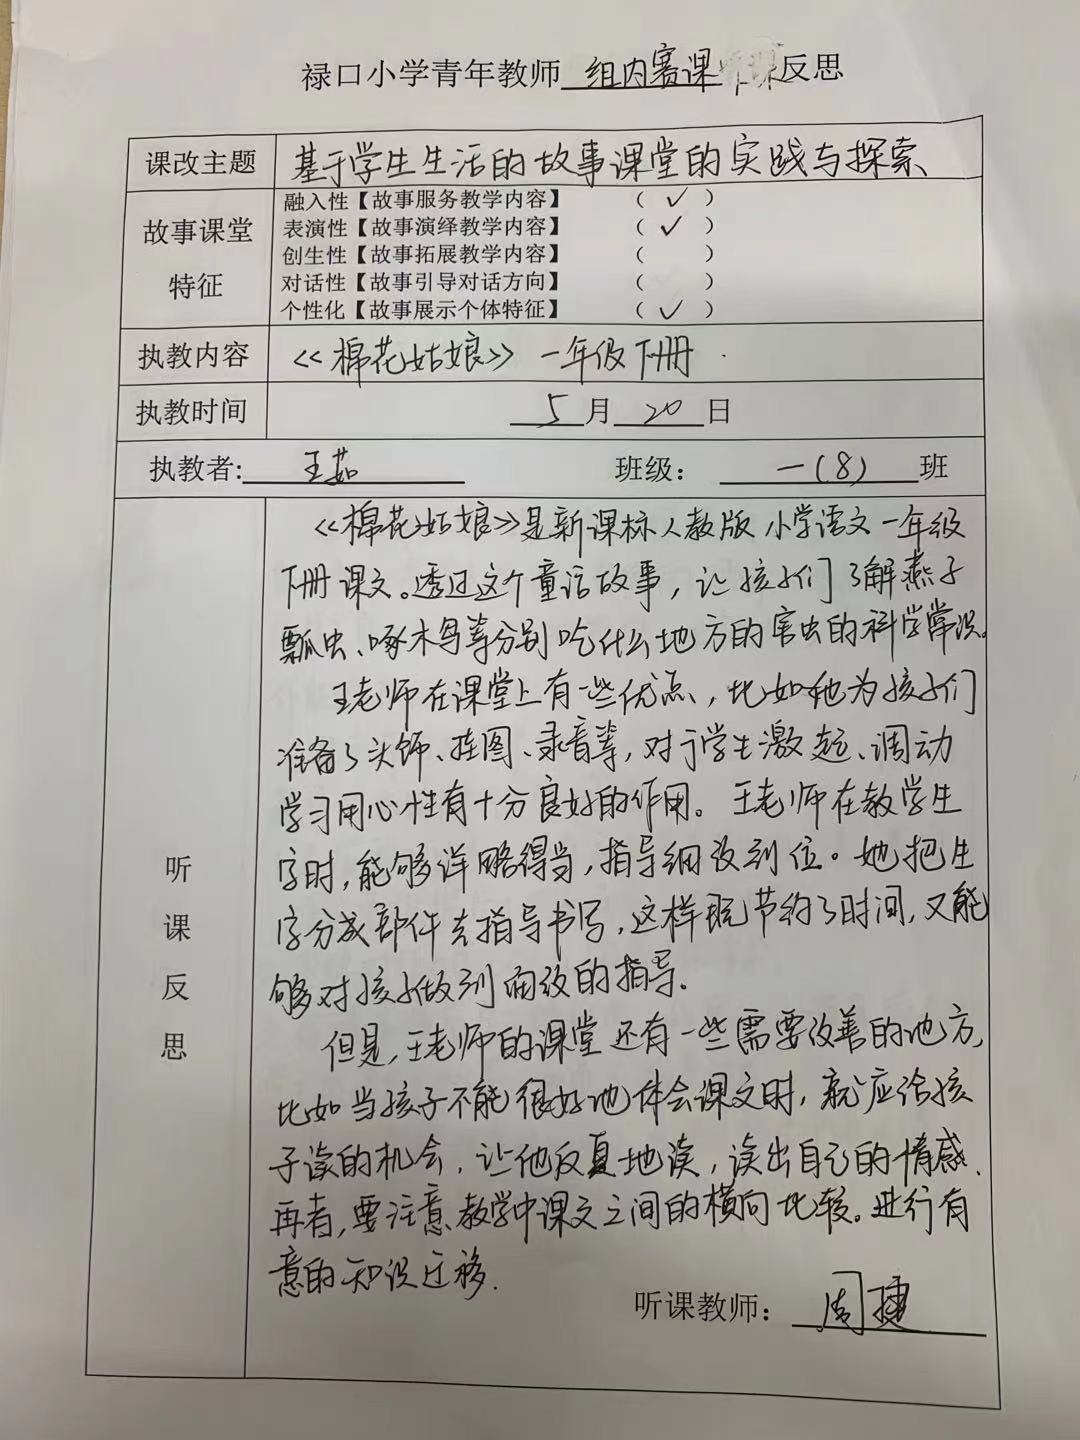 禄口小学青年教师 组内赛课听课反思
课改主题 基于学生生活的故事课堂的实践与探索
故事课堂
特征
融入性【故事服务教学内容】 ( ✓ )
表演性【故事演绎教学内容】 ( ✓ )
创生性【故事拓展教学内容】 ( )
对话性【故事引导对话方向】 ( )
个性化【故事展示个体特征】 ( ✓ )
执教内容 《棉花姑娘》 一年级下册
执教时间 5 月 20 日
执教者: 王茹 班级: 一(8) 班
听
课
反
思
《棉花姑娘》是新课标人教版小学语文一年级
下册课文。透过这个童话故事，让孩子们了解燕子
瓢虫、啄木鸟等分别吃什么地方的害虫的科学常识。
王老师在课堂上有一些优点，比如她为孩子们
准备了头饰、挂图、录音等，对于学生激起、调动
学习用心性有十分良好的作用。王老师在教学生
字时，能够详略得当，指导细致到位。她把生
字分成部件去指导书写，这样既节约了时间，又能
够对孩子做到细致的指导.
但是，王老师的课堂还有一些需要改善的地方，
比如当孩子不能很好地体会课文时，就应给孩
子读的机会，让他反复地读，读出自己的情感.
再者，要注意教学中课文之间的横向比较。进行有
意的知识迁移.
听课教师: 周捷